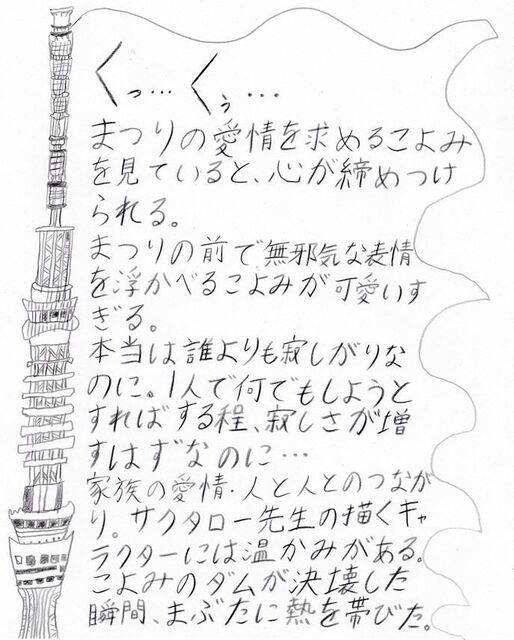 くっ…くぅ…
まつりの愛情を求めるこよみ
を見ていると、心が締めつけ
られる。
まつりの前で無邪気な表情
を浮かべるこよみが可愛いす
ぎる。
本当は誰よりも寂しがりな
のに。1人で何でもしようと
すればする程、寂しさが増
すはずなのに…
家族の愛情・人と人とのつなが
り。サクタロー先生の描くキャ
ラクターには温かみがある。
こよみのダムが決壊した
瞬間、まぶたに熱を帯びた。